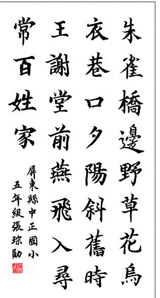 朱雀橋邊野草花烏
衣巷口夕陽斜舊時
王謝堂前燕飛入尋
常百姓家
屏東縣中正國小
五年級張琮勛